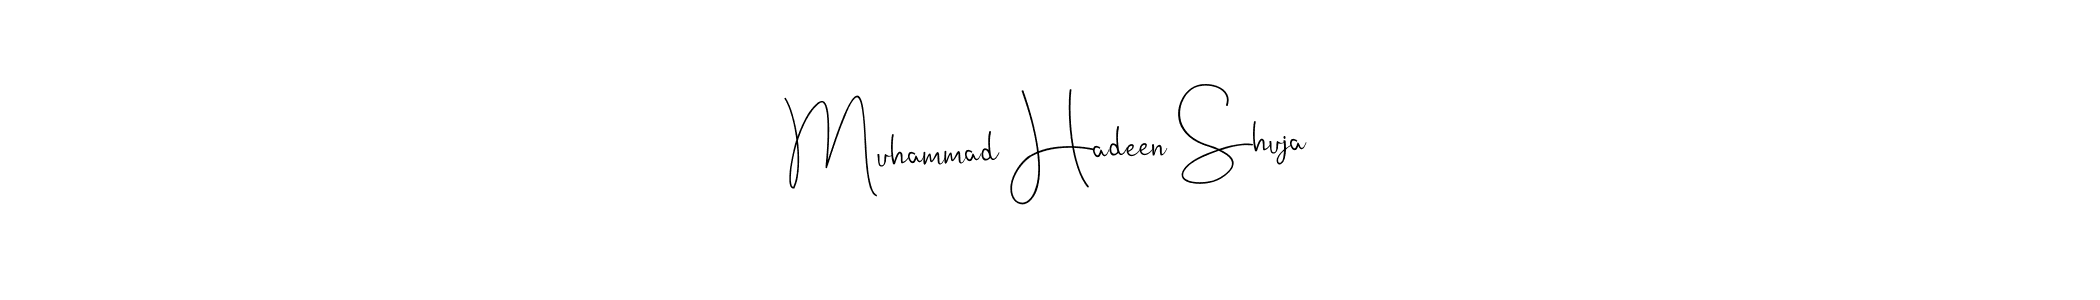 Muhammad Hadeen Shuja